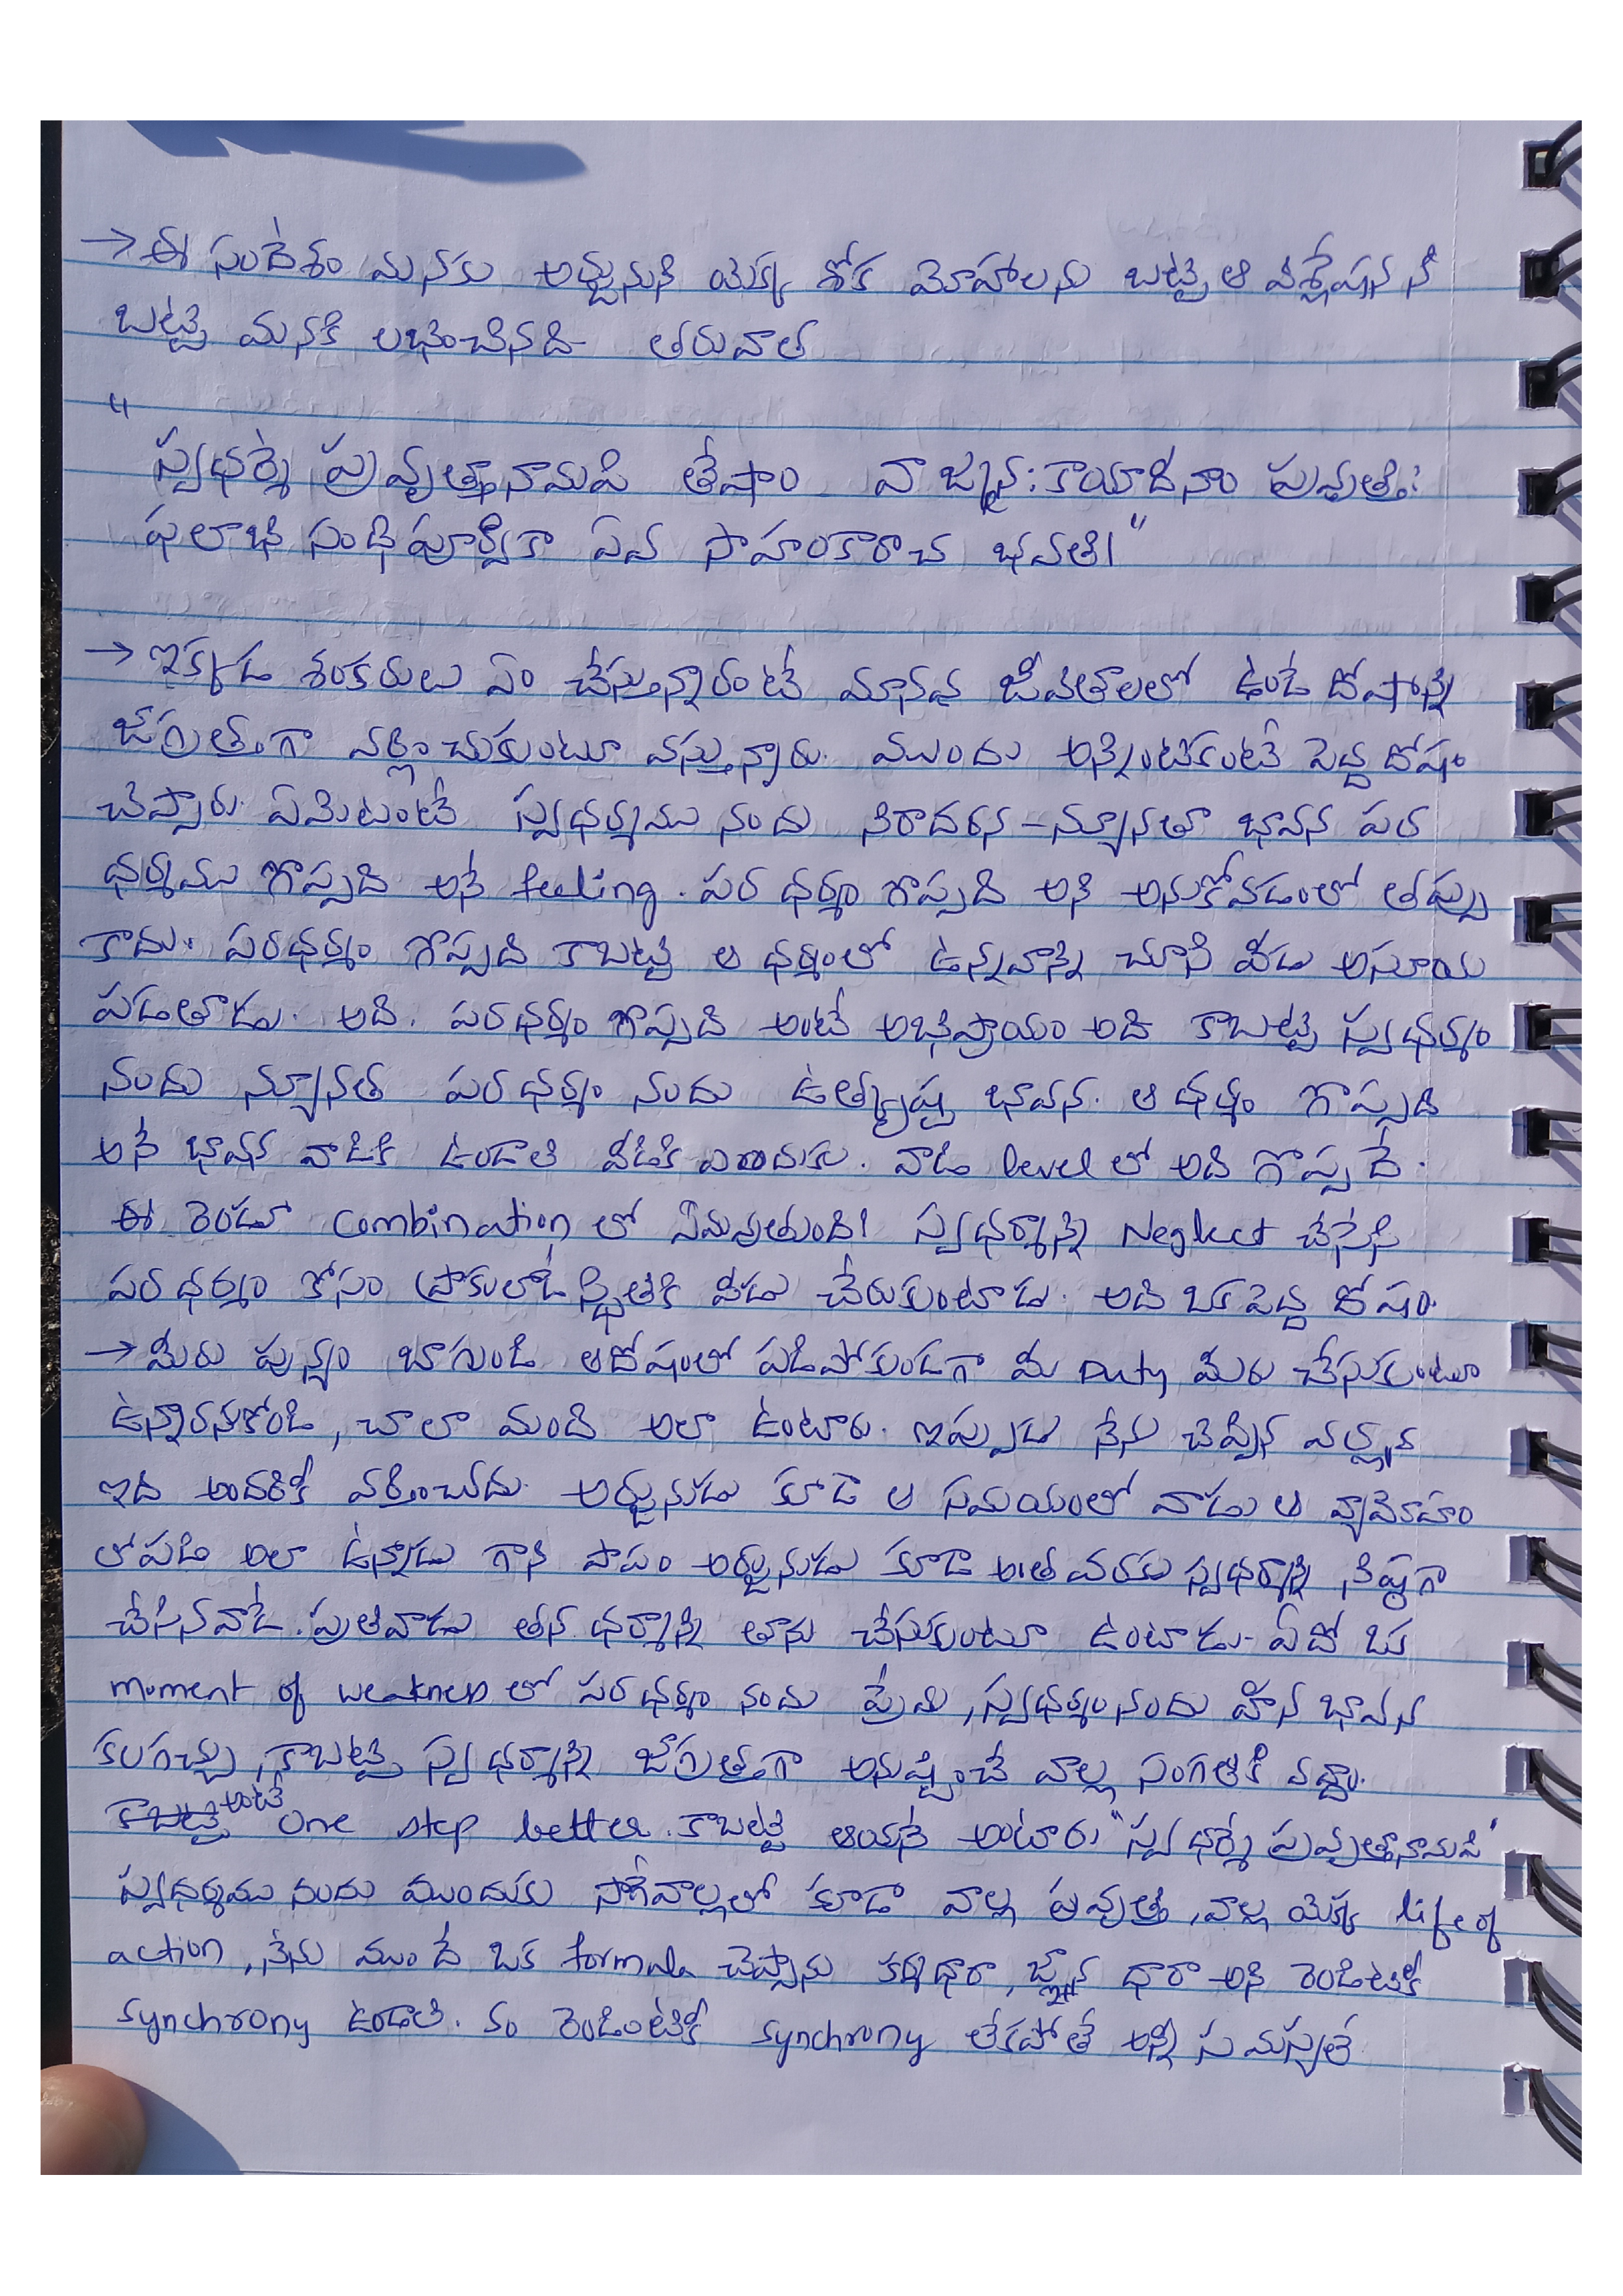 → ఈ సందేశం మనకు అర్జునుని యొక్క శోక మోహాలను బట్టి ఆ విశ్లేషన ని
బట్టి మనకి లభించినది తరువాత
"
స్వధర్మే ప్రవృత్తానామపి తేషాం వాఙ్మనః కాయాదీనాం ప్రవృత్తిః
ఫలాభి సంధిపూర్వికా ఏవ సాహంకారాచ భవతి।"
→ ఇక్కడ శంకరులు ఏం చేస్తున్నారంటే మానవ జీవితాలలో ఉండే దోషాన్ని
జాగ్రత్తగా వర్ణించుకుంటూ వస్తున్నారు. ముందు అన్నింటికంటే పెద్ద దోషం
చెప్పారు. ఏమిటంటే స్వధర్మము నందు నిరాదరన - న్యూనతా భావన పర
ధర్మము గొప్పది అనే feeling. పర ధర్మం గొప్పది అని అనుకోవడంలో తప్పు
కాదు. పరధర్మం గొప్పది కాబట్టి ఆ ధర్మంలో ఉన్నవాన్ని చూసి వీడు అసూయ
పడతాడు. అది. పరధర్మం గొప్పది అంటే అభిప్రాయం అది కాబట్టి స్వధర్మం
నందు న్యూనత పరధర్మం నందు ఉత్కృష్ట భావన. ఆ ధర్మం గొప్పది
అనే భావన వాడికి ఉండాలి వీడికి ఎందుకు. వాడి level లో అది గొప్పదే.
ఈ రెండూ combination లో ఏమవుతుంది! స్వధర్మాన్ని Neglect చేసేసి
పర ధర్మం కోసం ప్రాకులాడే స్థితికి వీడు చేరుకుంటాడు. అది ఒక పెద్ద దోషం.
→ మీరు పున్యం బాగుండి ఆదోషంలో పడిపోకుండగా మీ Duty మీరు చేసుకుంటూ
ఉన్నారనుకోండి, చాలా మంది అలా ఉంటారు. ఇప్పుడు నేను చెప్పిన వర్ణన
ఇది అందరికీ వర్తించదు. అర్జునుడు కూడా ఆ సమయంలో వాడు ఆ వ్యామోహం
లోపడి అలా ఉన్నాడు గాని పాపం అర్జునుడు కూడా అంత వరకు స్వధర్మాన్ని నిష్ఠగా
చేసినవాడే. ప్రతివాడు తన ధర్మాన్ని తాను చేసుకుంటూ ఉంటాడు. ఏదో ఒక
moment of weakness లో పర ధర్మం నందు ప్రేమ, స్వధర్మంనందు హీన భావన
కలగచ్చు, కాబట్టి స్వధర్మాన్ని జాగ్రత్తగా అనుష్ఠించే వాల్ల సంగతికి వద్దాం.
అంటే one step better. కాబట్టి ఆయనే అంటారు "స్వధర్మే ప్రవృత్తానామపి"
స్వధర్మము నందు ముందుకు సాగేవాల్లలో కూడా వాల్ల ప్రవృత్తి, వాల్ల యొక్క life of
action, నేను ముందే ఒక formula చెప్పాను కర్మధారా, జ్ఞాన ధారా అని రెండిటికీ
synchrony ఉండాలి. ఈ రెండింటికీ synchrony లేకపోతే అన్నీ సమస్యలే